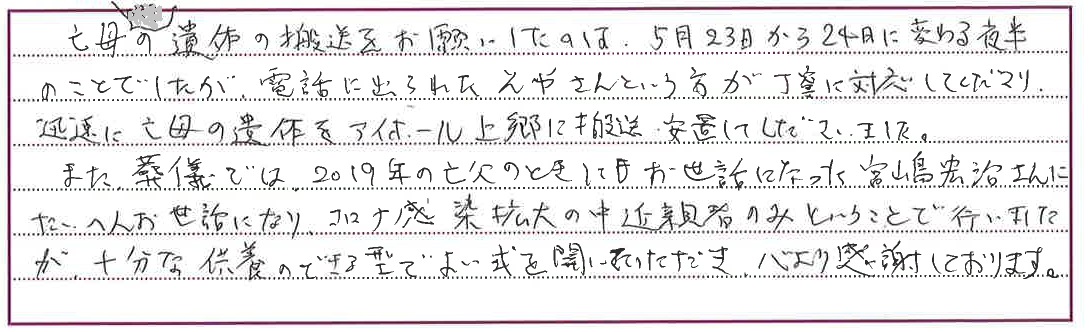 亡母の遺体の搬送をお願いしたのは、5月23日から24日に変わる夜半
のことでしたが、電話に出られたえやさんという方が丁寧に対応してくださり、
迅速に亡母の遺体をアイホール上郷に搬送、安置してくださいました。
また、葬儀では、2019年の亡父のときにもお世話になった宮嶋宏治さんに
たいへんお世話になり、コロナ感染拡大の中近親者のみということで行いました
が、十分な供養のできる型でよい式を開いていただき、心より感謝しております。